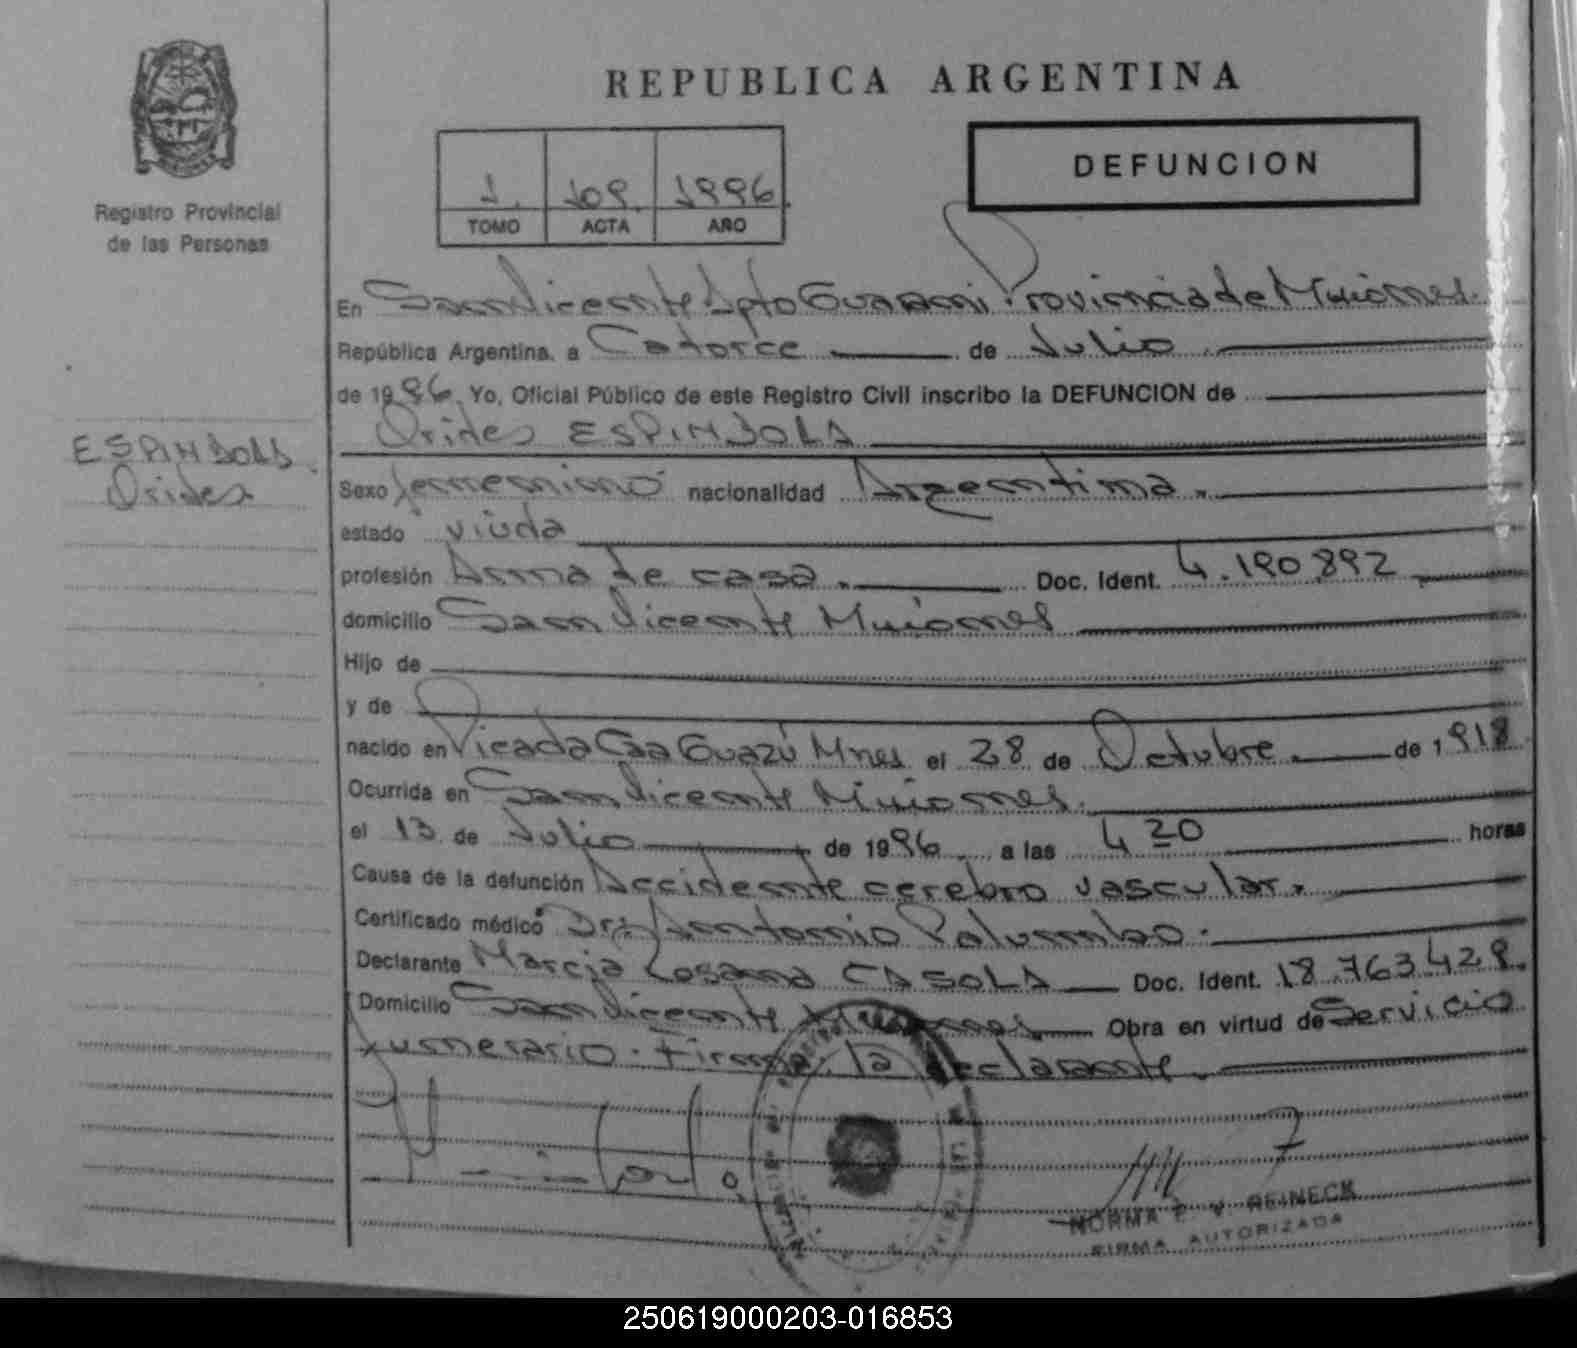 REPUBLICA ARGENTINA
Registro Provincial
de las Personas
1. 109. 1996.
TOMO ACTA AÑO
DEFUNCION
En San Vicente Dpto Guaraní Provincia de Misiones.
República Argentina, a Catorce de Julio
de 1996. Yo, Oficial Público de este Registro Civil inscribo la DEFUNCION de
Orides ESPINDOLA
ESPINDOLA.
Orides
Sexo femenino nacionalidad Argentina.
estado viuda
profesión Ama de casa. Doc. Ident. 4.190.892
domicilio San Vicente Misiones
Hijo de
y de
nacido en Picada Caa Guazú Mnes el 28 de Octubre de 1918
Ocurrida en San Vicente Misiones.
el 13 de Julio de 1996 a las 4 20 horas
Causa de la defunción Accidente cerebro vascular.
Certificado médico Dr: Antonio Palumbo.
Declarante Marcia Losana CASOLA Doc. Ident. 18.763.429.
Domicilio San Vicente Misiones Obra en virtud de Servicio
funerario. Firma la declarante.
NORMA REINECK
FIRMA AUTORIZADA
250619000203-016853